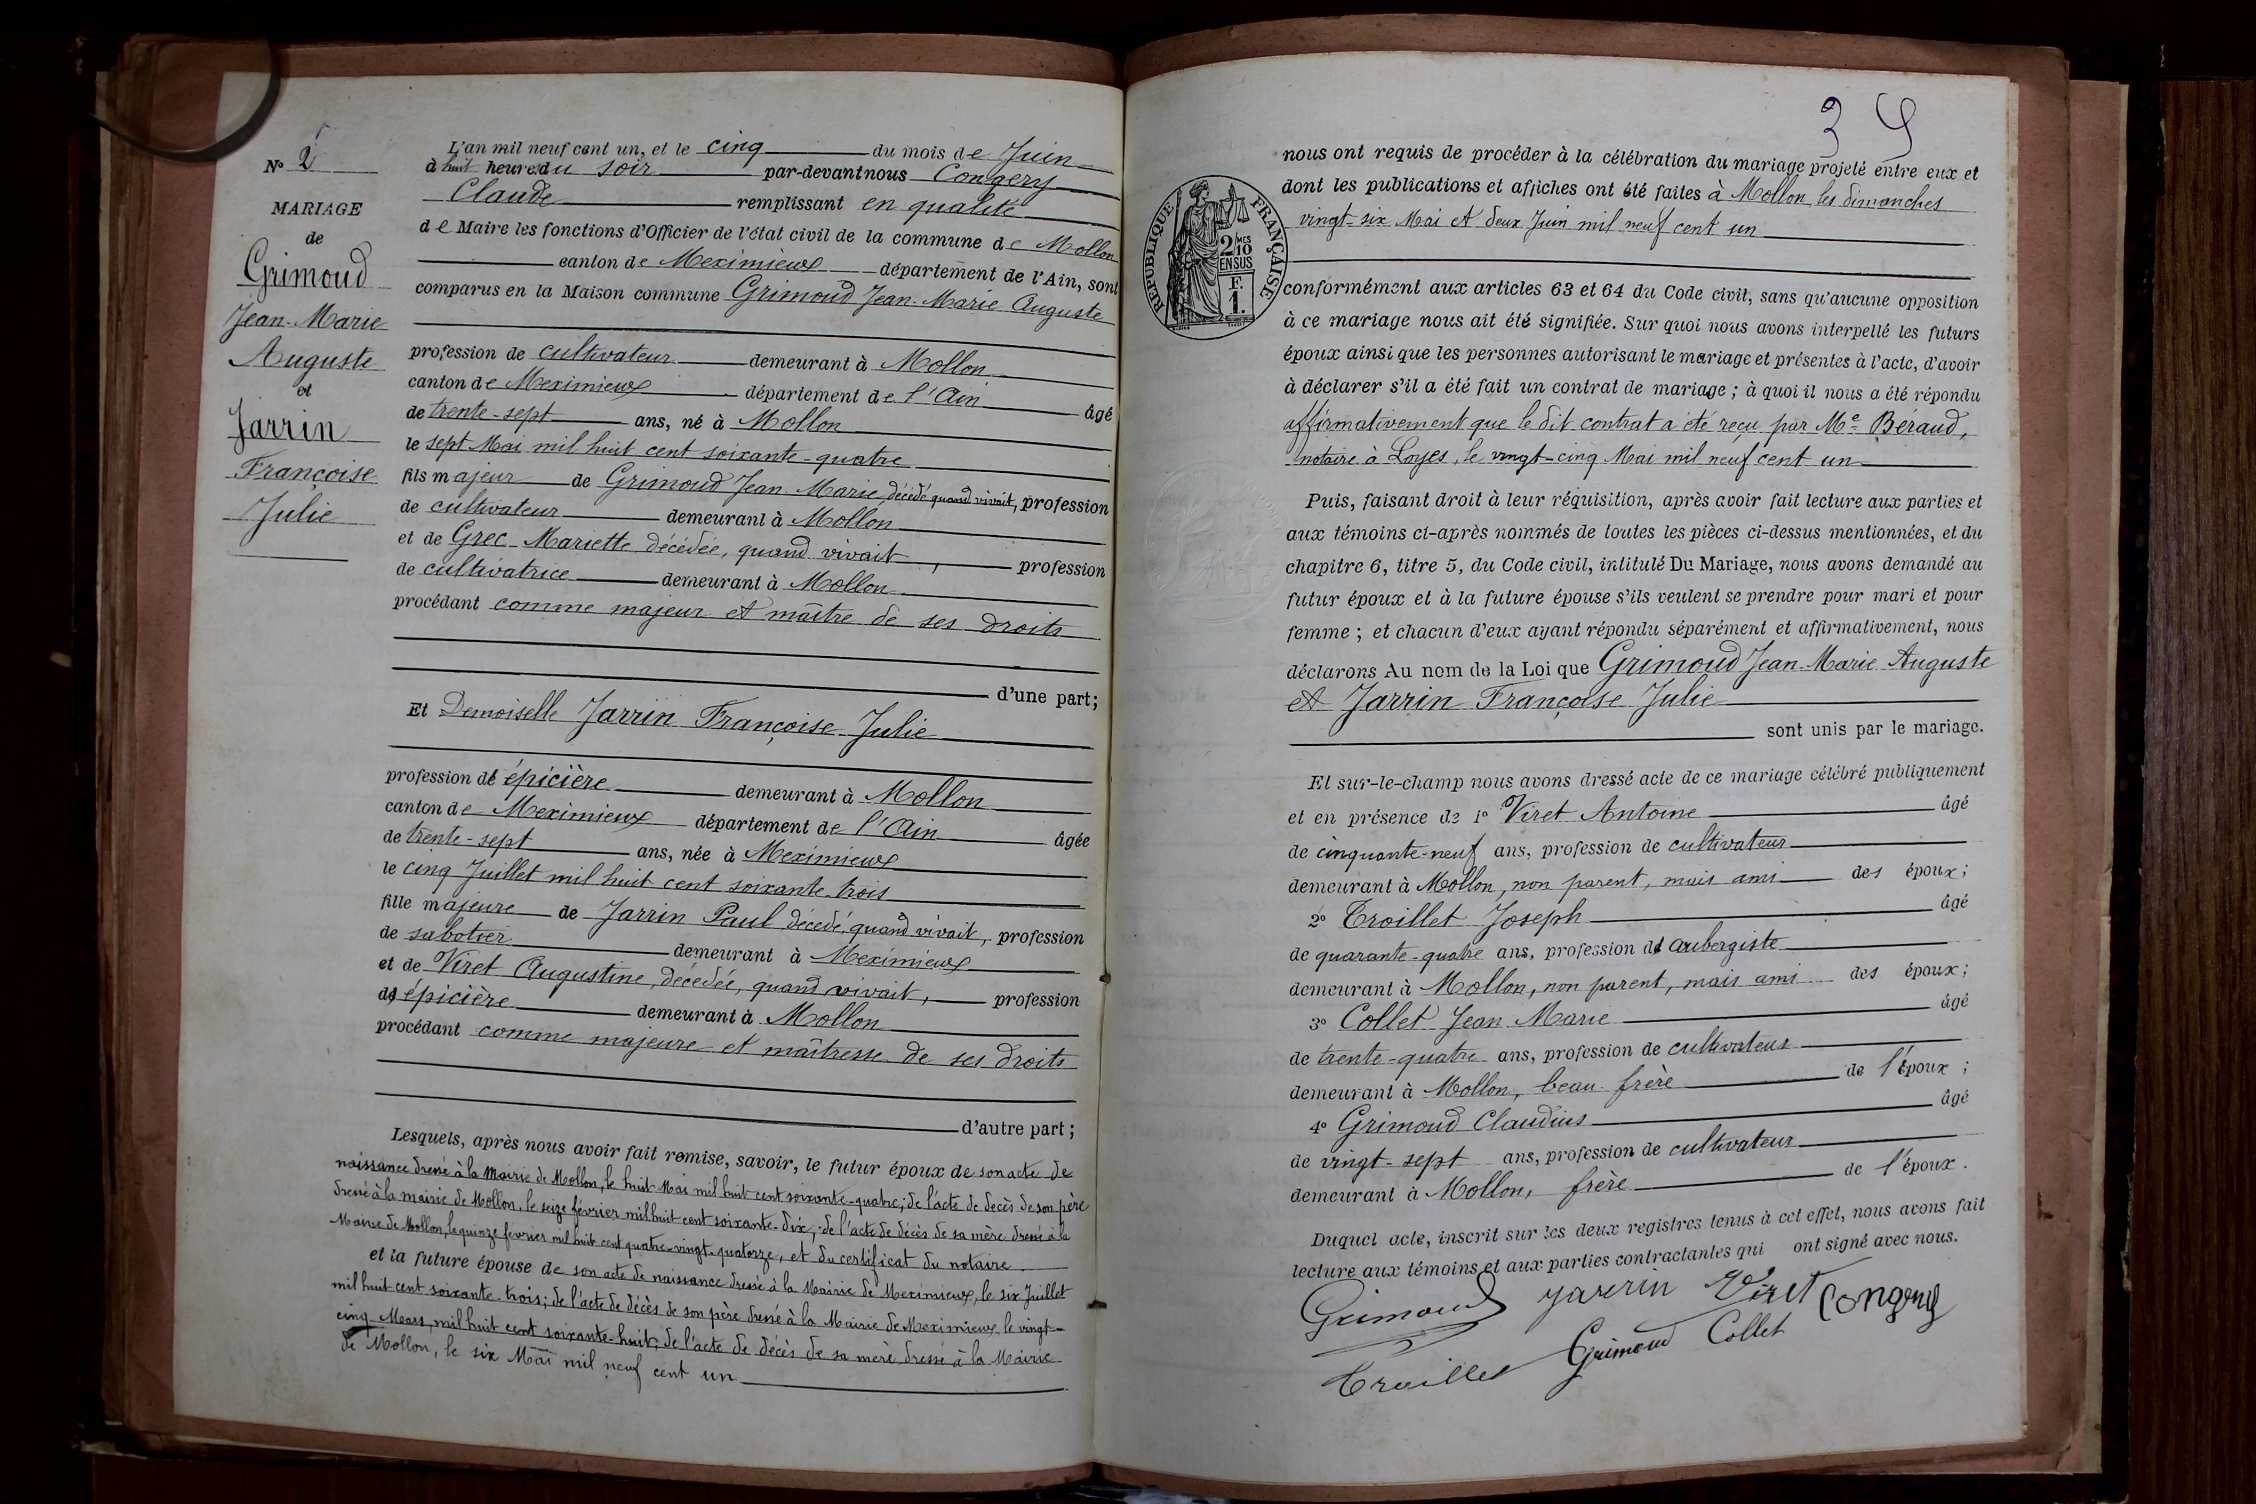 N° 2
MARIAGE
de
Grimoud
Jean-Marie
Auguste
et
Jarrin
Françoise
Julie
L'an mil neuf cent un, et le cinq du mois de Juin
à huit heures du soir par-devant nous Congery
Claude remplissant en qualité
de Maire les fonctions d'Officier de l'état civil de la commune de Mollon
canton de Meximieux département de l'Ain, sont
comparus en la Maison commune Grimoud Jean-Marie Auguste
profession de cultivateur demeurant à Mollon
canton de Meximieux département de l'Ain âgé
de trente-sept ans, né à Mollon
le sept Mai mil huit cent soixante-quatre
fils majeur de Grimoud Jean Marie, décédé quand vivait, profession
de cultivateur demeurant à Mollon
et de Grec Mariette décédée, quand vivait, profession
de cultivatrice demeurant à Mollon
procédant comme majeur et maître de ses droits
d'une part;
Et Demoiselle Jarrin Françoise Julie
profession d'épicière demeurant à Mollon
canton de Meximieux département de l'Ain âgée
de trente-sept ans, née à Meximieux
le cinq Juillet mil huit cent soixante trois
fille majeure de Jarrin Paul décedé, quand vivait, profession
de sabotier demeurant à Meximieux
et de Viret Augustine, décédée, quand vivait, profession
d'épicière demeurant à Mollon
procédant comme majeure et maîtresse de ses droits
d'autre part;
Lesquels, après nous avoir fait remise, savoir, le futur époux de son acte de
naissance dressé à la Mairie de Mollon, le huit Mai mil huit cent soixante-quatre; de l'acte de décès de son père
dressé à la mairie de Mollon, le seize février mil huit cent soixante-dix; de l'acte de décès de sa mère dressé à la
Mairie de Mollon, le quinze février mil huit cent quatre-vingt-quatorze, et du certificat du notaire.
et la future épouse de son acte de naissance dressé à la Mairie de Meximieux, le six Juillet
mil huit cent soixante-trois; de l'acte de décès de son père dressé à la Mairie de Meximieux le vingt-
cinq Mars, mil huit cent soixante-huit; de l'acte de décès de sa mère dressé à la Mairie
de Mollon, le six Mai mil neuf cent un
3
RÉPUBLIQUE FRANÇAISE
2 MES
10
EN SUS
F.
1.
nous ont requis de procéder à la célébration du mariage projeté entre eux et
dont les publications et affiches ont été faites à Mollon les dimanches
vingt-six Mai et deux Juin mil neuf cent un
conformément aux articles 63 et 64 du Code civil, sans qu'aucune opposition
à ce mariage nous ait été signifiée. Sur quoi nous avons interpellé les futurs
époux ainsi que les personnes autorisant le mariage et présentes à l'acte, d'avoir
à déclarer s'il a été fait un contrat de mariage; à quoi il nous a été répondu
affirmativement que le dit contrat a été reçu par Me Béraud,
notaire à Loyes, le vingt-cinq Mai mil neuf cent un
Puis, faisant droit à leur réquisition, après avoir fait lecture aux parties et
aux témoins ci-après nommés de toutes les pièces ci-dessus mentionnées, et du
chapitre 6, titre 5, du Code civil, intitulé Du Mariage, nous avons demandé au
futur époux et à la future épouse s'ils veulent se prendre pour mari et pour
femme; et chacun d'eux ayant répondu séparément et affirmativement, nous
déclarons Au nom de la Loi que Grimoud Jean-Marie Auguste
et Jarrin Françoise Julie
sont unis par le mariage.
Et sur-le-champ nous avons dressé acte de ce mariage célébré publiquement
et en présence de 1° Viret Antoine âgé
de cinquante-neuf ans, profession de cultivateur
demeurant à Mollon, non parent, mais ami des époux;
2° Troillet Joseph âgé
de quarante-quatre ans, profession d'aubergiste
demeurant à Mollon, non parent, mais ami des époux;
3° Collet Jean Marie âgé
de trente-quatre ans, profession de cultivateur
demeurant à Mollon, beau-frère de l'époux;
4° Grimoud Claudius âgé
de vingt-sept ans, profession de cultivateur
demeurant à Mollon, frère de l'époux.
Duquel acte, inscrit sur les deux registres tenus à cet effet, nous avons fait
lecture aux témoins et aux parties contractantes qui ont signé avec nous.
Grimoud Jarrin Viret Congery
Troillet Grimoud Collet